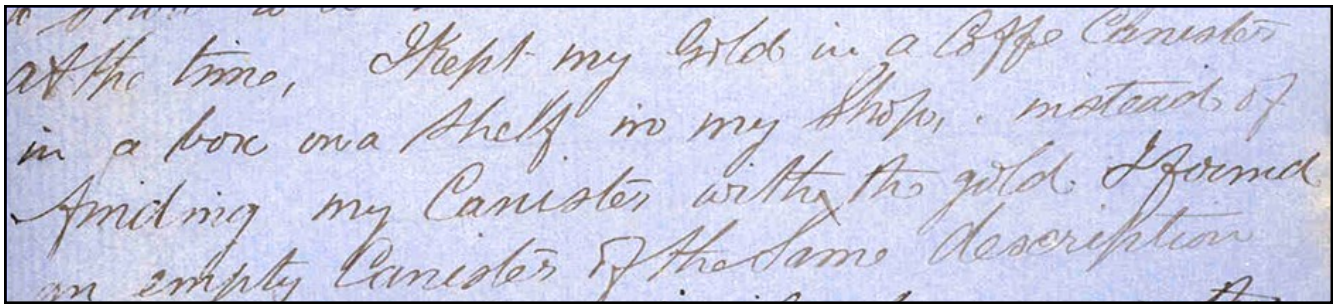 at the time, I kept my Gold in a Coffe Canister
in a box on a Shelf in my Shop, instead of
finding my Canister with the gold I found
an empty Canister of the Same description